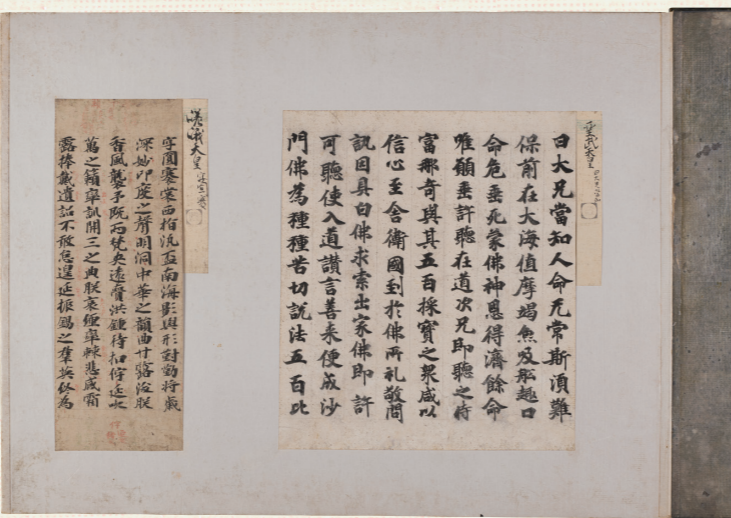 聖武天皇
曰大兄當知人命无常斯須難
保前在大海值摩竭魚及船趣口
命危垂死蒙佛神恩得濟餘命
唯願垂許聽在道次兄即聽之時
富那奇與其五百採寶之衆咸以
信心至舍衛國到於佛所礼敬問
訊因具白佛求索出家佛即許
可聽使入道讚言善来便成沙
門佛為種種苦切說法五百比
嵯峨天皇
西柏汎盃南海影與形對動將氣
深妙印度之聲明洞中華之韻曲甘露浴朕
香風襲予既而梵夾遠齎洪鍾待扣佇延
之籍皐訊開三之典朕哀纏皐棘悲咸霜
露捧戴遺詔不敢怠遑延振錫之羣英為